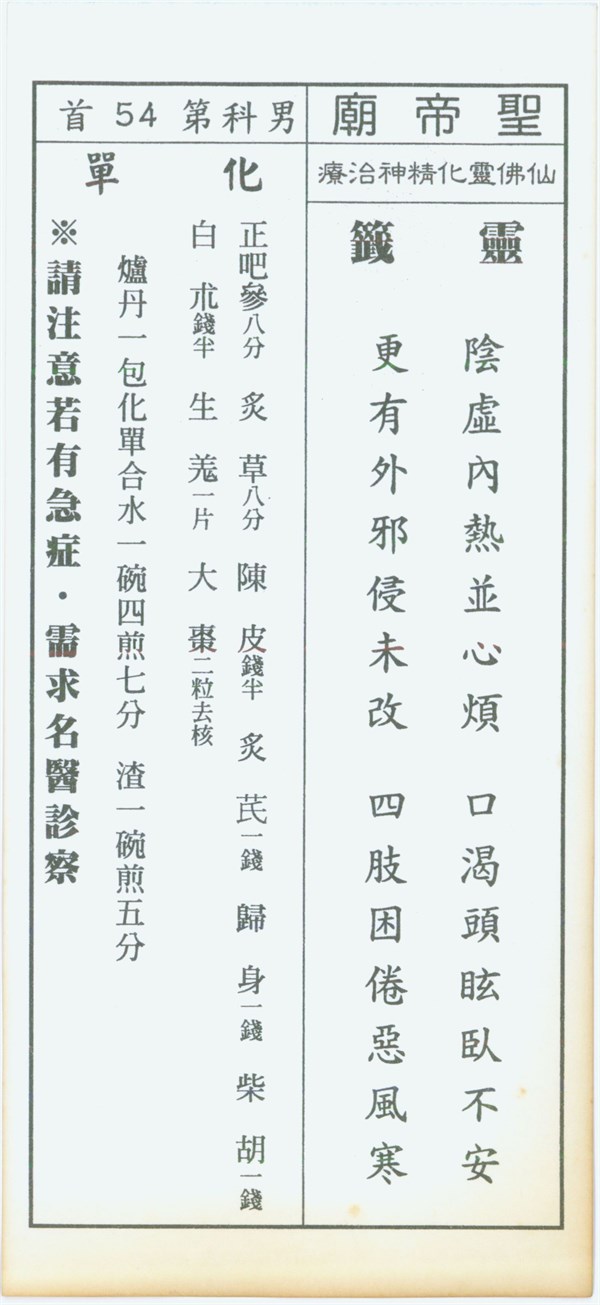 聖帝廟
仙佛靈化精神治療
靈籤
陰虛內熱並心煩 口渴頭眩臥不安
更有外邪侵未改 四肢困倦惡風寒
男科第54首
化單
正吧參八分 炙草八分 陳皮錢半 炙芪一錢 歸身一錢 柴胡一錢
白朮錢半 生羗一片 大棗二粒去核
爐丹一包化單合水一碗四煎七分 渣一碗煎五分
※請注意若有急症・需求名醫診察